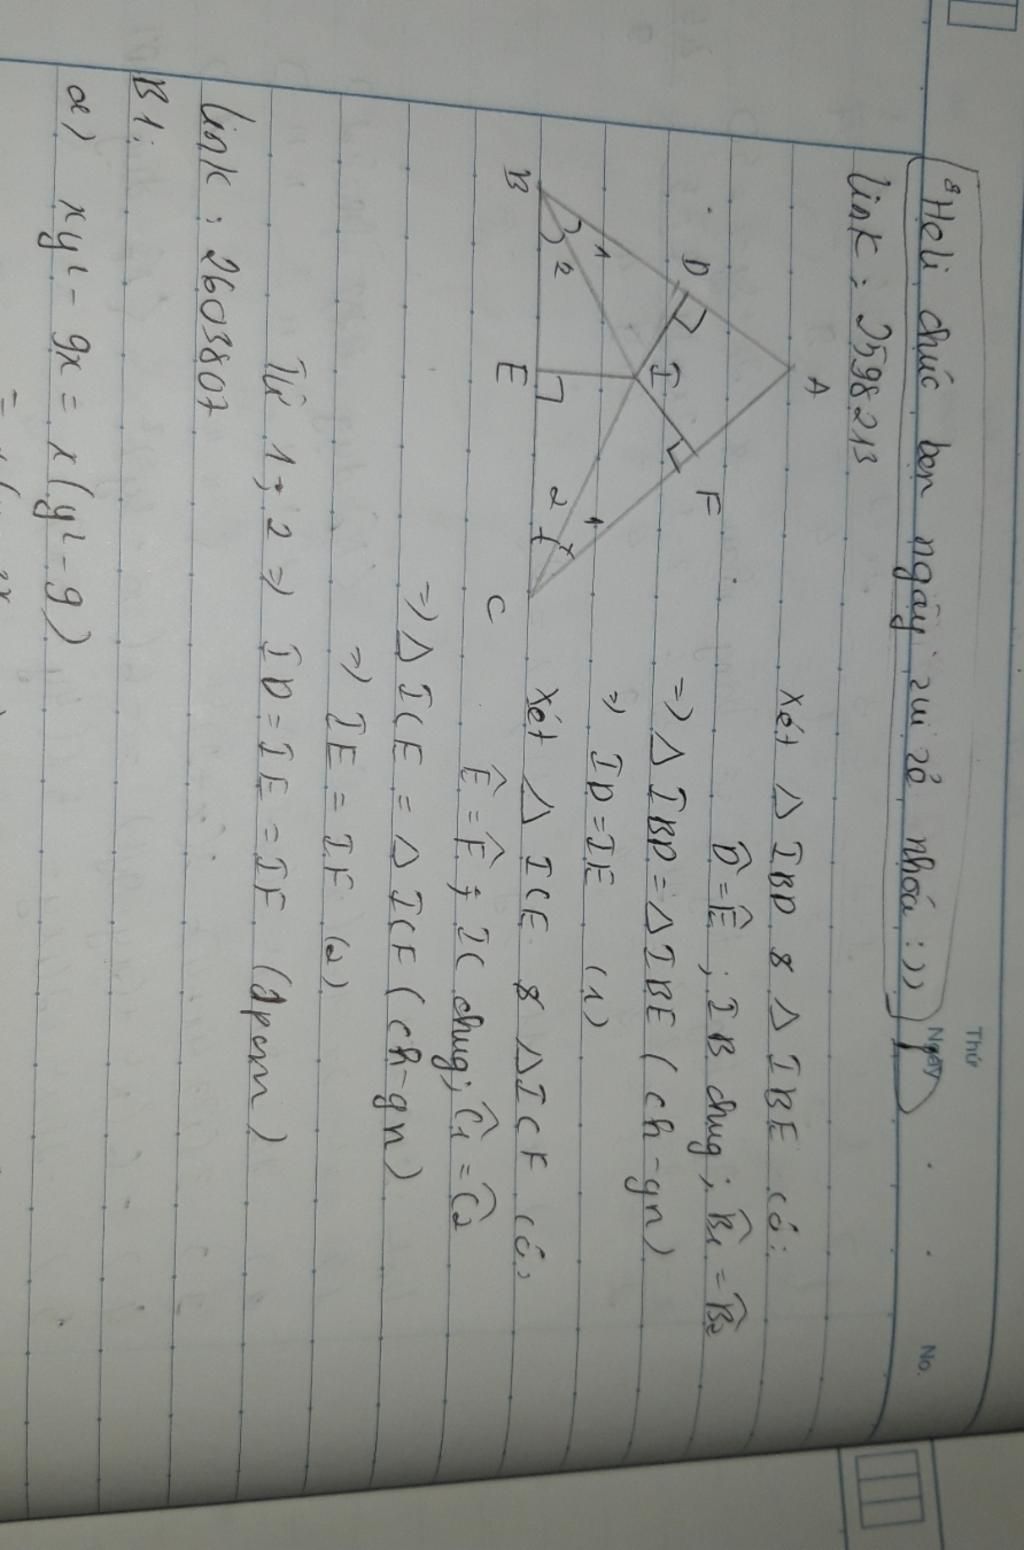 Thứ
Ngày
No.
Heli chúc bạn ngày zui zẻ nhoá :))
link : 2598213
A
D
F
I
1
2
1
2
B
E
C
Xét Δ IBD & Δ IBE có:
D̂ = Ê ; IB chug ; B̂1 = B̂2
=) Δ IBD = Δ IBE ( ch - gn )
=) ID = IE (1)
Xét Δ ICE & Δ ICF có:
Ê = F̂ ; IC chug ; Ĉ1 = Ĉ2
=) Δ ICE = Δ ICF ( ch - gn )
=) IE = IF (2)
Từ 1, 2 =) ID = IE = IF (dpcm)
link : 2603807
B1:
a) xy² - 9x = x(y² - 9)